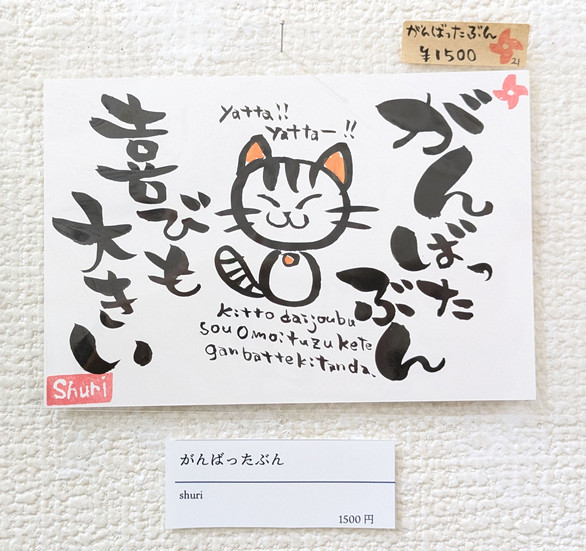 がんばったぶん
¥1500
21
がんばった
ぶん
yatta!!
yattaー!!
喜びも
大きい
kitto daijoubu
sou omoituzukete
ganbattekitanda.
Shuri
がんばったぶん
shuri
1500 円